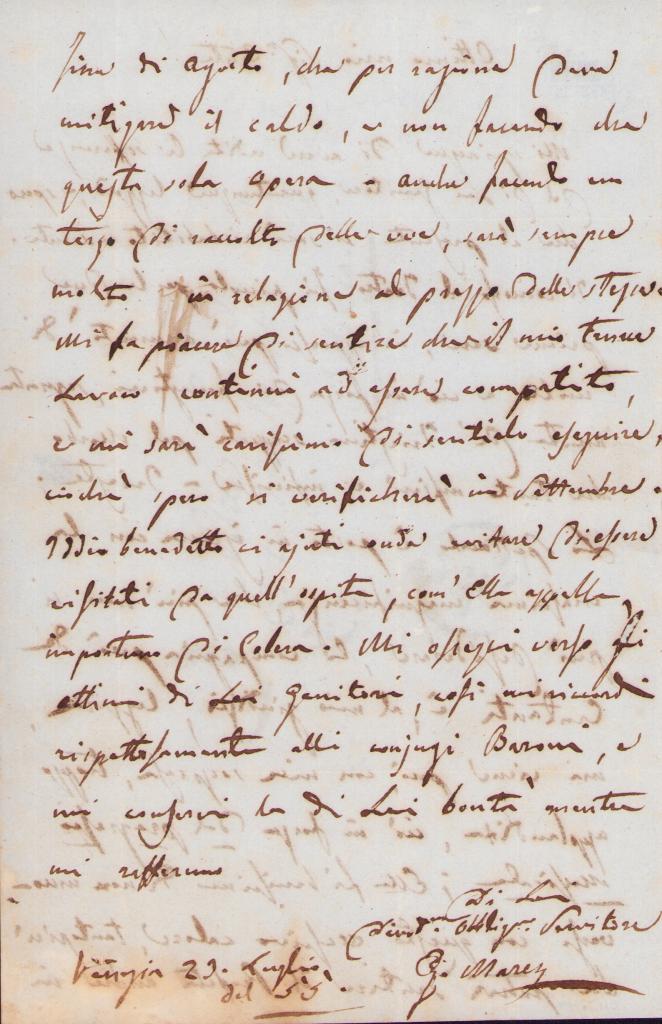 fine di agosto, che per ragione deve
mitigare il caldo, e non facendo che
questa sola opera - anche facendo un
terzo di raccolto delle uve, sarà sempre
molto in relazione al prezzo delle stesse.
Mi fa piacere di sentire che il mio tenue
Lavoro continui ad essere compatito,
e mi sarà carissimo di sentirlo eseguire,
ciochè però si verificherà in Settembre.
Iddio benedetto ci ajuti onde evitare di essere
visitati da quell'ospite, com'Ella appella
importuno di Colera. Mi ossequi verso gli
ottimi di Lei Genitori, così mi ricordi
rispettosamente alli conjugi Baroni, e
mi conservi la di Lei bontà mentre
mi raffermo
Di Lei
Devot.mo Obblig.mo Servitore
Marey
Venezia 29. Luglio
del 55.